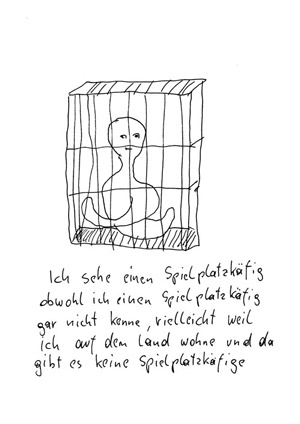 Ich sehe einen Spielplatzkäfig
obwohl ich einen Spielplatzkäfig
gar nicht kenne, vielleicht weil
ich auf dem Land wohne und da
gibt es keine Spielplatzkäfige